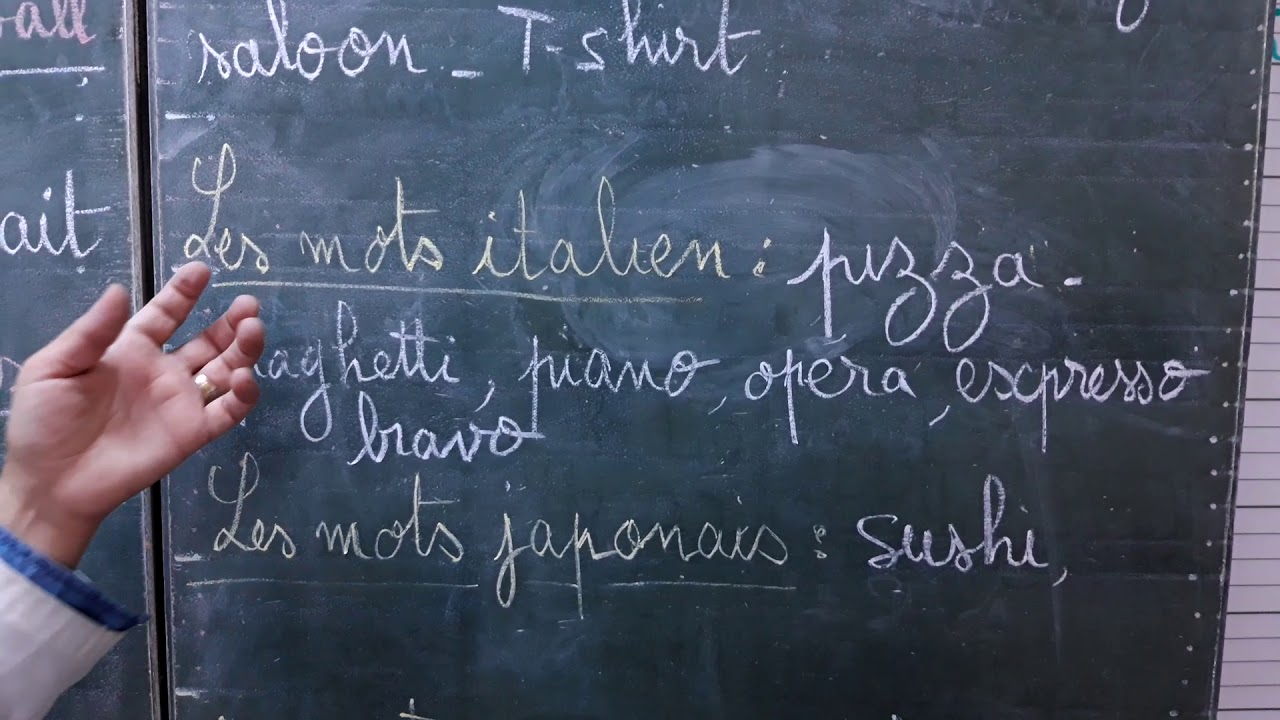 all
saloon - T-shirt
ait
Les mots italien : pizza -
aghetti, piano, opéra, expresso
bravo
Les mots japonais : sushi,